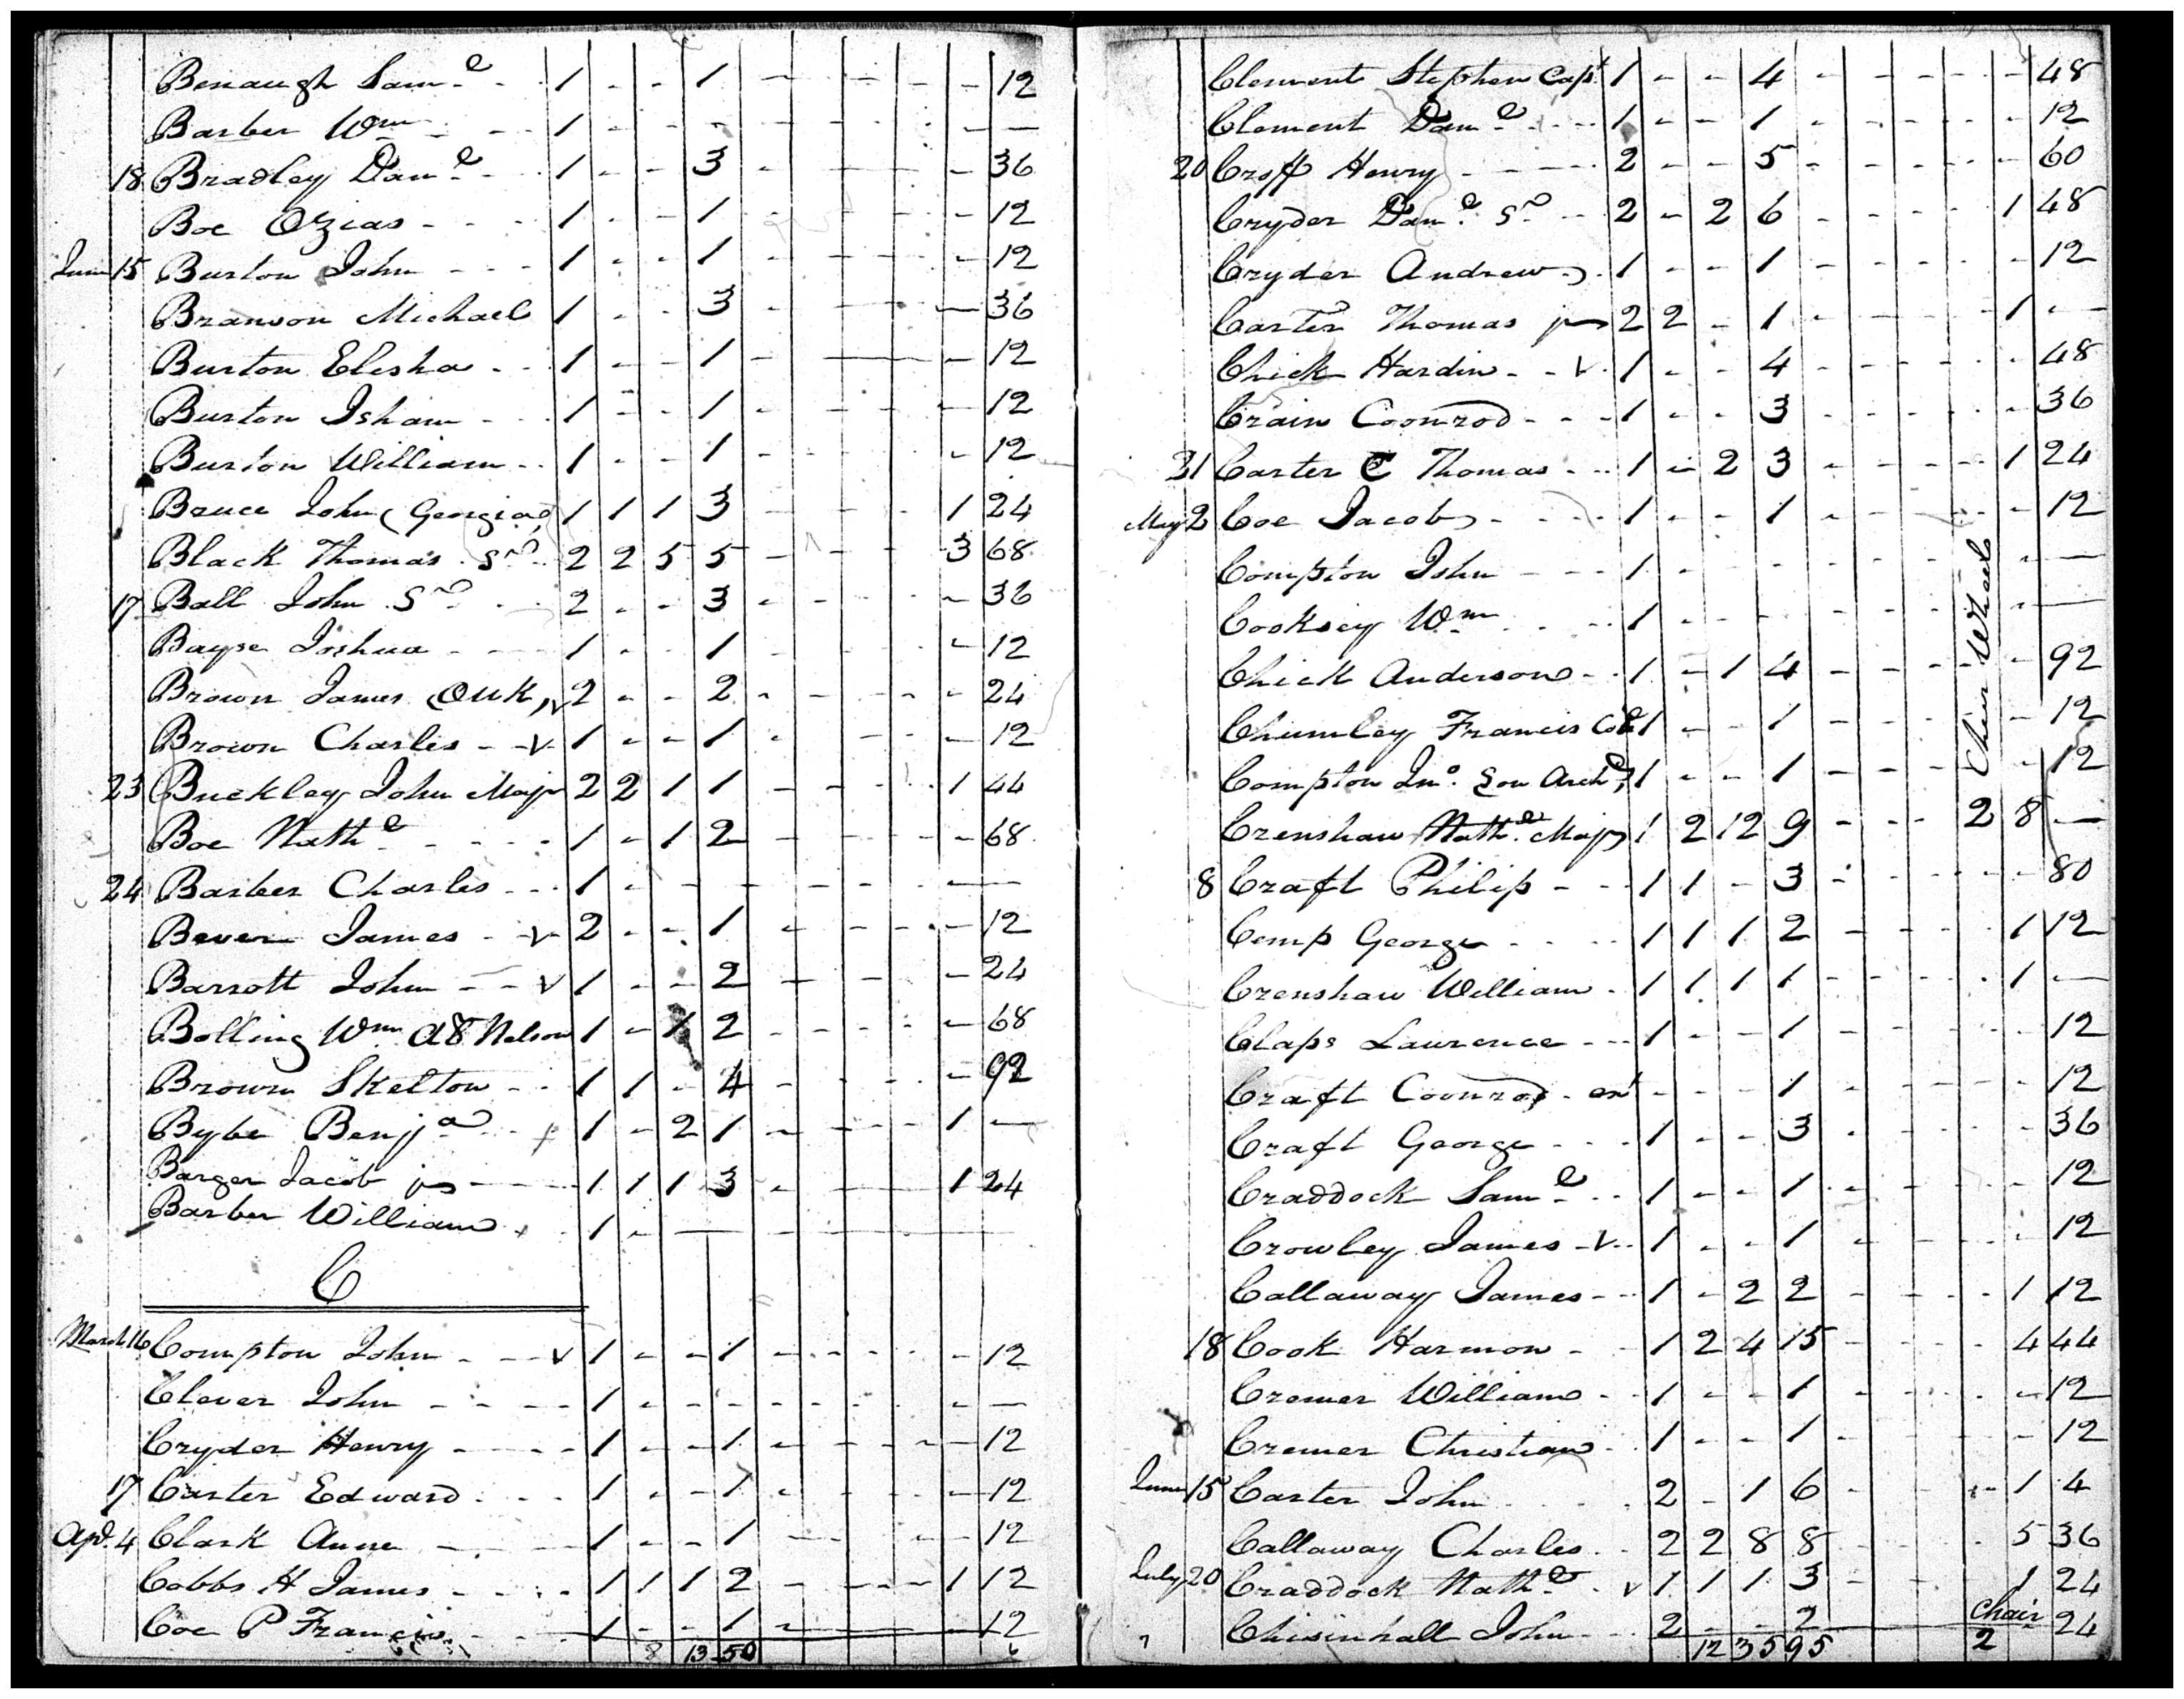 Benaugh Sam.l - - 1 - - 1 - - - - - 12
Barber Wm - - - 1 - - - - - - - - —
18 Bradley Dan.l - 1 - - 3 - - - - - 36
Boe Ozias - - - 1 - - 1 - - - - - 12
June 15 Burton John - - - 1 - - 1 - - - - - 12
Branson Michael 1 - - 3 - - - - - 36
Burton Elisha - - 1 - - 1 - — - 12
Burton Isham - - 1 - - 1 - - - - - 12
Burton William - - 1 - - 1 - - - - - 12
Bruce John (Georgia) 1 1 1 3 - - - - 1 24
Black Thomas Sr 2 2 5 5 - - - - 3 68
17 Ball John Sr - - 2 - - 3 - - - - - 36
Bayse Joshua - - 1 - - 1 - 12
Brown James (Ouk, v 2 - - 2 - - - - - 24
Brown Charles - v 1 - - 1 - - - - - 12
23 Buckley John Majr 2 2 1 1 - - - - 1 44
Boe Nath.l - - - - 1 - 1 2 - - - - - 68
24 Barber Charles - - - 1 - - - - - - - —
Bever James - v 2 - - 1 - - - - - 12
Barrott John - - v 1 - - 2 - - - - - 24
Bolling Wm at Nelson 1 - 1 2 - - - - - 68
Brown Skelton - - 1 1 - 4 - - - - - 92
Bybe Benj.a - - 1 - 2 1 - - - - 1 —
Barger Jacob jr - - - 1 1 1 3 - - — 1 24
Barber William - 1 - —
C
March 16 Compton John - - v 1 - - 1 - - - - - 12
Clever John - - - - 1 - - - - - - - - —
Cryder Henry - - - - 1 - - 1 - - - - - 12
17 Carter Edward - - - 1 - - 1 - - - - - 12
Apl. 4 Clark Anne - - - 1 - - 1 - - - - - 12
Cobbs H James - - - - 1 1 1 2 - - - - 1 12
Coe P Francis 1 - - 1 - - 12
8 13 50 6
Clement Stephen Capt. 1 - - 4 - - - - - 48
Clement Dan.l - - - - 1 - - 1 - - - - - 12
20 Croff Henry - - - - 2 - - 5 - - - - - 60
Cryder Dan.l Sr - - 2 - 2 6 - - - - 1 48
Cryder Andrew - 1 - - 1 - - - - - 12
Carter Thomas jr 2 2 - 1 - - - - 1 —
Chick Hardin - - v 1 - - 4 - - - - - 48
Crain Coonrod - - - 1 - - 3 - - - - - 36
21 Carter C Thomas - - - 1 - 2 3 - - - - 1 24
May 2 Coe Jacob - - - - 1 - - 1 - - - - - 12
Compton John - - - 1 - - - - - - - - —
Cooksey Wm - - - 1 - - - - - - - - —
Chick Anderson - - 1 - 1 4 - - - - - 92
Chumley Francis Col 1 - - 1 - - - - - 12
Compton Jno. Son Archd, 1 - - 1 - - - - 12
Chair Wheel
Crenshaw Nath.l Majr 1 2 12 9 - - - 2 8 —
8 Craft Philip - - - 1 1 - 3 - - - - - 80
Cemp George - - - - 1 1 1 2 - - - - 1 12
Crenshaw William - 1 1 1 1 - - - - 1 —
Claps Laurence - - - 1 - - 1 - - - - - 12
Craft Coonrod - ex.t - - - 1 - - - - - 12
Craft George - - - - 1 - - 3 - - - - - 36
Craddock Sam.l - - 1 - - 1 - - - - - 12
Crowley James - v - - 1 - - 1 - - - - - 12
Callaway James - - - 1 - 2 2 - - - - 1 12
18 Cook Harmon - - 1 2 4 15 - - - - 4 44
Cremer William - - 1 - - 1 - - - - - 12
Cremer Christian - 1 - - 1 - - - - - 12
June 15 Carter John - - - - 2 - 1 6 - - - - 1 4
Callaway Charles - - 2 2 8 8 - - - - 5 36
July 20 Craddock Nath.l - v 1 1 1 3 - - 1 24
Chisinhall John - - 2 - - 2 Chair - 24
12 35 95 2